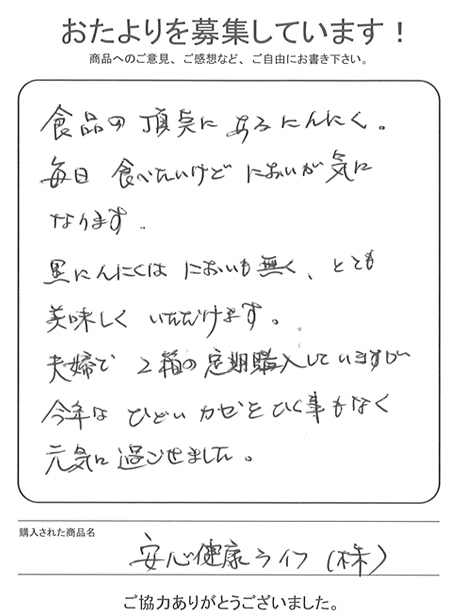 おたよりを募集しています！
商品へのご意見、ご感想など、ご自由にお書き下さい。
食品の頂点にあるにんにく。
毎日 食べたいけど においが気に
なります。
黒にんにくは においも無く、とても
美味しく いただけます。
夫婦で 2箱の定期購入していますが
今年は ひどい カゼを ひく事もなく
元気に過ごせました。
購入された商品名
安心健康ライフ(株)
ご協力ありがとうございました。